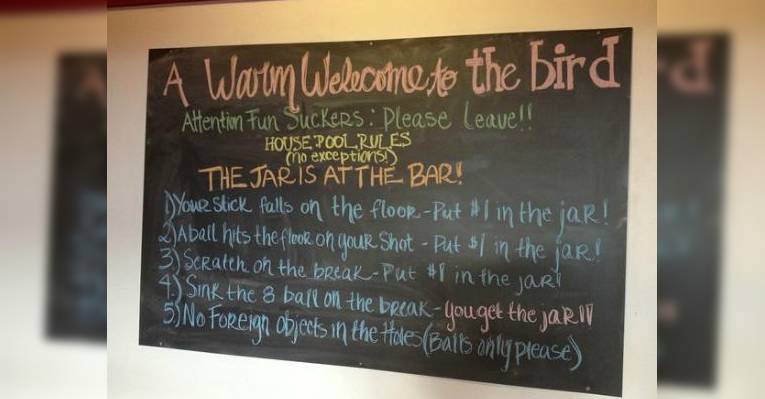 A Warm Welcome to the bird
Attention Fun Suckers: Please Leave!!
HOUSE POOL RULES
(no exceptions!)
THE JAR IS AT THE BAR!
1) Your stick falls on the floor - Put $1 in the jar!
2) A ball hits the floor on your shot - Put $1 in the jar!
3) Scratch on the break - Put $1 in the jar!
4) Sink the 8 ball on the break - you get the jar!!
5) No Foreign objects in the Holes (Balls only please)